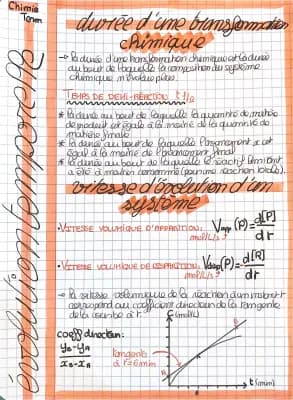 Chimie
Term
évolution temporelle
durée d'une transformation
chimique
→ la durée d'une transformation chimique est la durée
au bout de laquelle la composition du système
chimique n'évolue plus.
TEMPS DE DEMI-RÉACTION t1/2
* la durée au bout de laquelle la quantité de matière
de produit est égale à la moitié de la quantité de
matière finale
* la durée au bout de laquelle l'avancement x est
égal à la moitié de l'avancement final
* la durée au bout de laquelle le réactif limitant
a été à moitié consommé (pour une réaction totale).
vitesse d'évolution d'un
système
• VITESSE VOLUMIQUE D'APPARITION: Vapp (P) = d[P]/dt
mol/L/s
• VITESSE VOLUMIQUE DE DISPARITION: Vdisp (P) = - d[R]/dt
mol/L/s
→ la vitesse volumique de la réaction à un instant t
correspond au coefficient directeur de la tangente
de la courbe à t.
coeff directeur:
yB - yA
xB - xA
tangente
à t = 6 min
A
B
t (min)